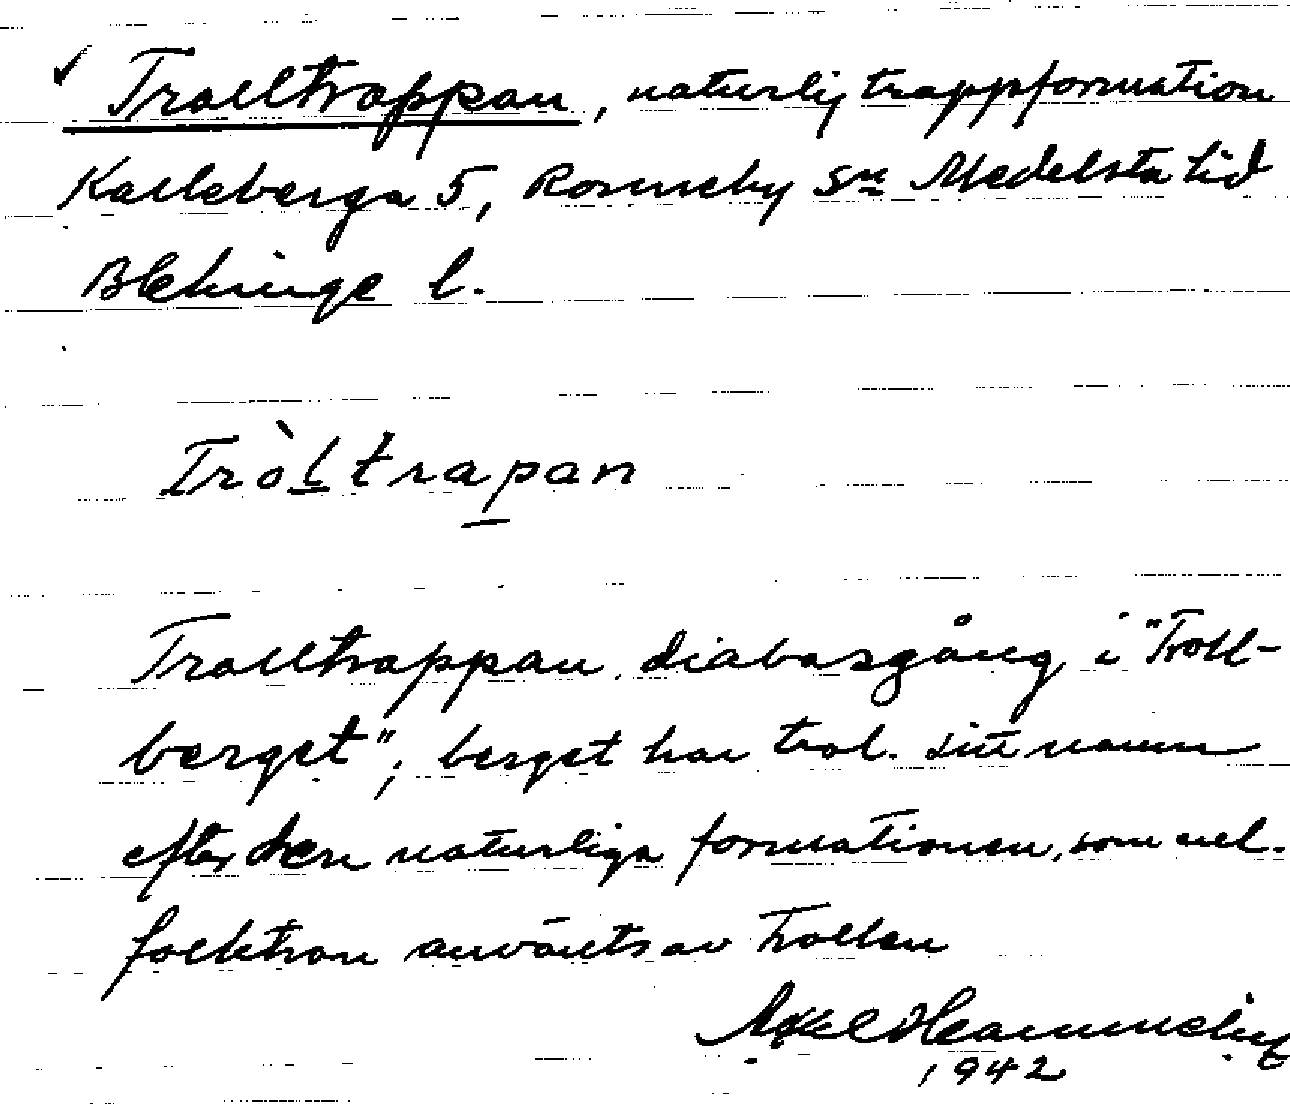 Trolltrappan, naturlig trappformation
Kalleberga 5, Roseneby sn Medelsta hd
Blekinge l.
Tròltrapan
Trolltrappan diabasgång i "Troll-
berget"; berget har trol. sitt namn
efter den naturliga formationen, som enl.
folktron använts av trollen
Axel
1942